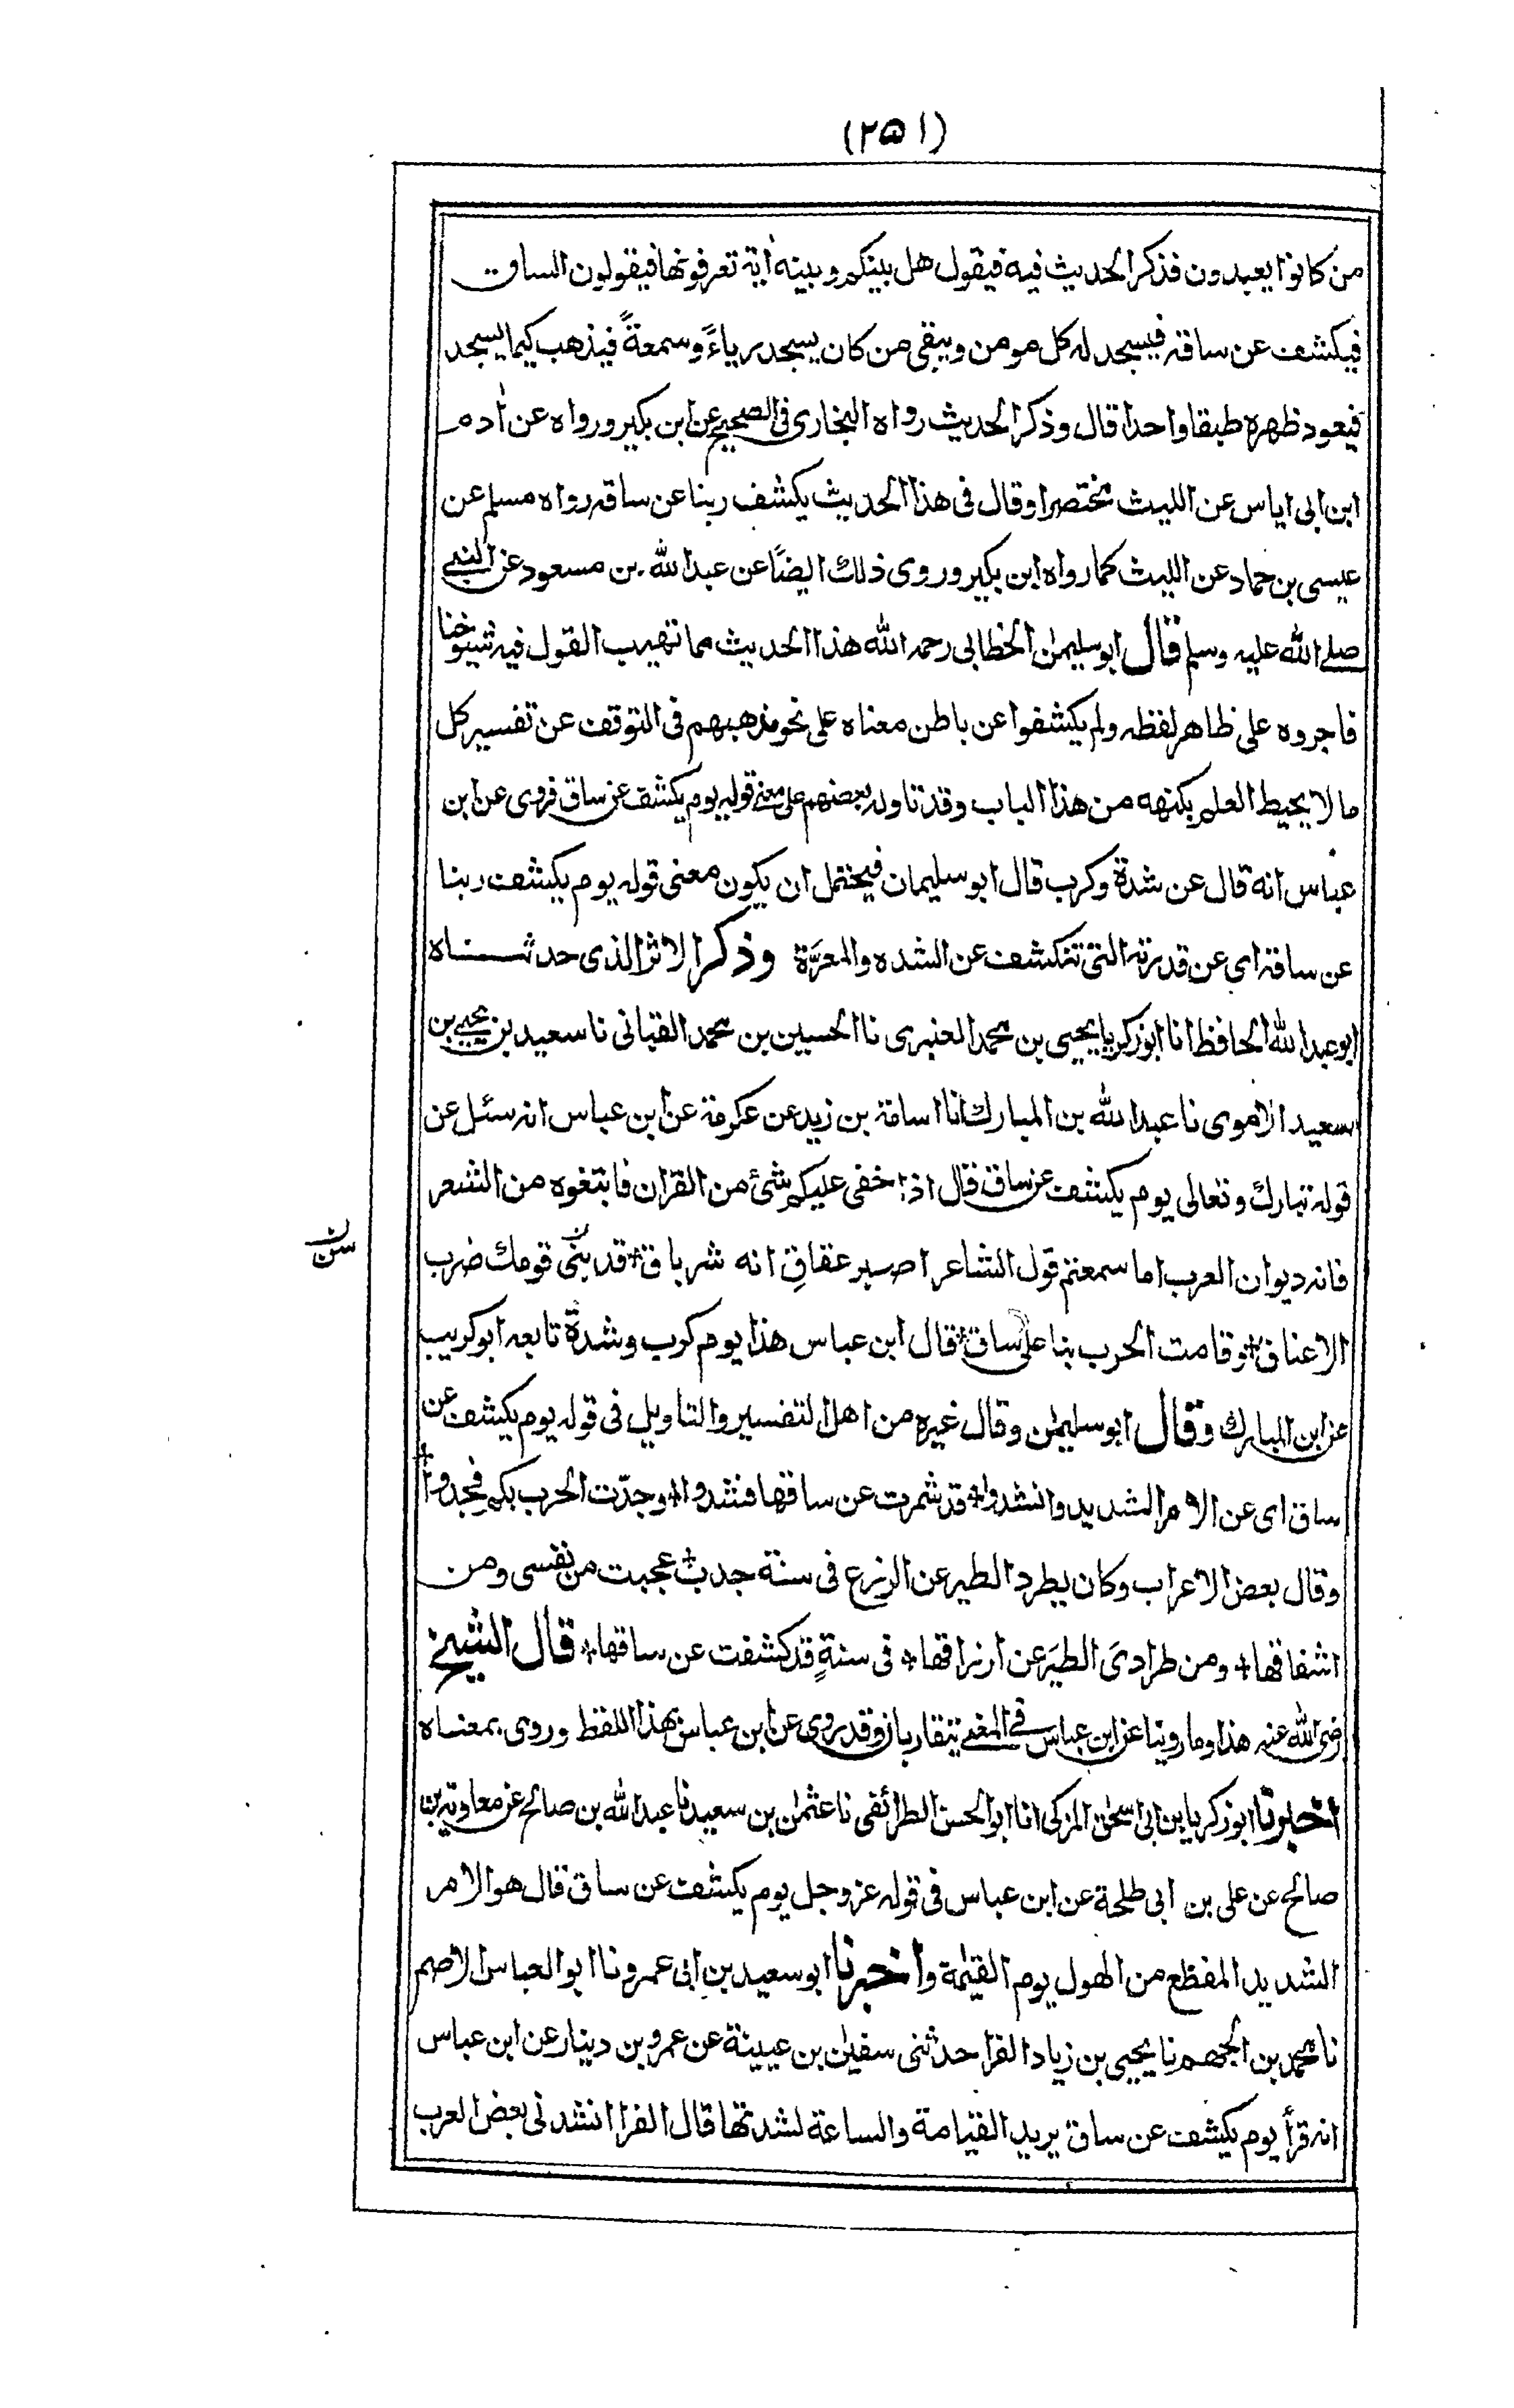 (٢۵١)
من كانوا يعبدون فذكر الحديث فيه فيقول هل بينكم وبينه اٰية تعرفونها فيقولون الساق
فيكشف عن ساقه فيسجد له كل مومن ويبقى من كان يسجد رياءً وسمعةً فيذهب كيما يسجد
فيعود ظهره طبقا واحدا قال وذكر الحديث رواه البخارى فى الصحيح عن ابن بكير ورواه عن اٰدم
ابن ابى اياس عن الليث مختصرا وقال فى هذا الحديث يكشف ربنا عن ساقه رواه مسلم عن
عيسى بن حماد عن الليث كما رواه ابن بكير وروى ذلك ايضًا عن عبد الله بن مسعود عن النبى
صلے الله عليه وسلم قال ابو سليمٰن الخطابى رحمه الله هذا الحديث مما تهيب القول فيه شيوخنا
فاجروه على ظاهر لفظه ولم يكشفوا عن باطن معناه على نحو مذهبهم فى التوقف عن تفسير كل
ما لا يحيط العلم بكنهه من هذا الباب وقد تاوله بعضهم على معنى قوله يوم يكشف عن ساق فروى عن ابن
عباس انه قال عن شدة وكرب قال ابو سليمان فيحتمل ان يكون معنى قوله يوم يكشف ربنا
عن ساقه اى عن قدرته التى تنكشف عن الشده والمعرّة وذكر الاثر الذى حدثناه
ابو عبد الله الحافظ انا ابو زكريا يحيى بن محمد العنبرى نا الحسين بن محمد القبانى نا سعيد بن يحيى بن
سعيد الاموى نا عبد الله بن المبارك انا اسامة بن زيد عن عكرمة عن ابن عباس انه سئل عن
قوله تبارك وتعالى يوم يكشف عن ساق قال اذا خفى عليكم شئ من القران فابتغوه من الشعر
فانه ديوان العرب اما سمعتم قول الشاعر اصبر عقاقِ انه شر باق + قد بنّى قومك ضرب
سن
الاعناق + وقامت الحرب بنا على ساق + قال ابن عباس هذا يوم كرب وشدة تابعه ابو كريب
عن ابن المبارك وقال ابو سليمٰن وقال غيره من اهل التفسير والتاويل فى قوله يوم يكشف عن
ساق اى عن الامر الشديد وانشدوا + قد شمرت عن ساقها فشدوا + وجدّت الحرب بكم فجدوا +
وقال بعض الاعراب وكان يطرد الطير عن الزرع فى سنة جدب + عجبت من نفسى ومن
اشفاقها + ومن طرادىَ الطيَر عن ارزاقها + فى سنةٍ قد كشفت عن ساقها + قال الشيخ
رضى الله عنه هذا وما روينا عن ابن عباس فى المعنى يتقاربان وقد روى عن ابن عباس بهذا اللفظ وروى بمعناه
اخبرنا ابو زكريا بن ابى اسحٰق المزكى انا ابو الحسن الطرائفى نا عثمٰن بن سعيد نا عبد الله بن صالح عن معاوية بن
صالح عن على بن ابى طلحة عن ابن عباس فى قوله عز وجل يوم يكشف عن ساق قال هو الامر
الشديد المفظع من الهول يوم القيٰمة واخبرنا ابو سعيد بن ابى عمرو نا ابو العباس الاصم
نا محمد بن الجهم نا يحيى بن زياد الفرا حدثنى سفيٰن بن عيينة عن عمرو بن دينار عن ابن عباس
انه قرأ يوم يكشف عن ساق يريد القيامة والساعة لشدتها قال الفرا انشدنى بعض العرب